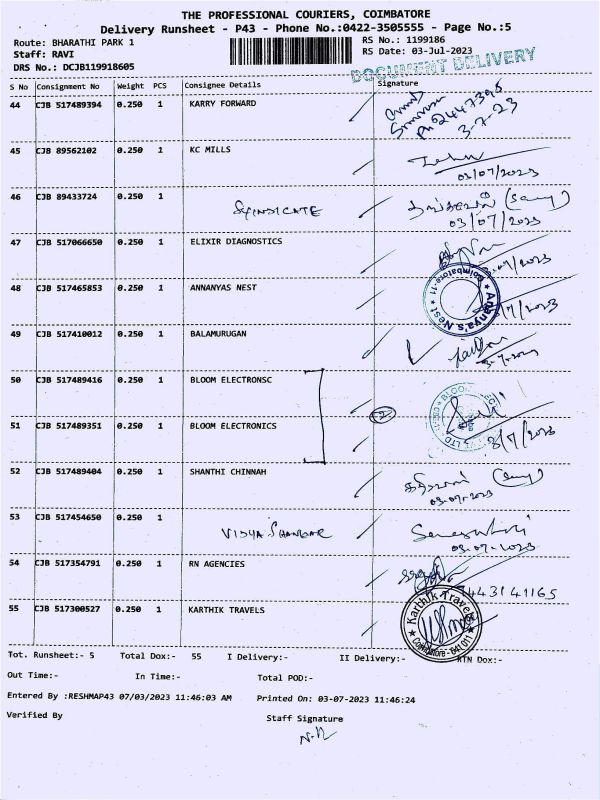 THE PROFESSIONAL COURIERS, COIMBATORE
Delivery Runsheet - P43 - Phone No.:0422-3505555 - Page No.:5
Route: BHARATHI PARK 1 RS No.: 1199186
Staff: RAVI RS Date: 03-Jul-2023
DRS No.: DCJB119918605 DOCUMENT DELIVERY
S No Consignment No Weight PCS Consignee Details Signature
44 CJB 517489394 0.250 1 KARRY FORWARD
3-7-23
45 CJB 89562102 0.250 1 KC MILLS
03/07/2023
46 CJB 89433724 0.250 1 SYINDICATE
03/07/2023
47 CJB 517066650 0.250 1 ELIXIR DIAGNOSTICS
48 CJB 517465853 0.250 1 ANNANYAS NEST
Ananya's Nest Coimbatore-11
49 CJB 517410012 0.250 1 BALAMURUGAN
3-7-2023
50 CJB 517489416 0.250 1 BLOOM ELECTRONSC
51 CJB 517489351 0.250 1 BLOOM ELECTRONICS
3/7/2023
52 CJB 517489404 0.250 1 SHANTHI CHINNAH
03-07-2023
53 CJB 517454650 0.250 1 VIDYA SHANGAR
03-07-2023
54 CJB 517354791 0.250 1 RN AGENCIES
55 CJB 517300527 0.250 1 KARTHIK TRAVELS
Karthik Travels
Tot. Runsheet:- 5 Total Dox:- 55 I Delivery:- II Delivery:- RTN Dox:-
Out Time:- In Time:- Total POD:-
Entered By :RESHMAP43 07/03/2023 11:46:03 AM Printed On: 03-07-2023 11:46:24
Verified By Staff Signature